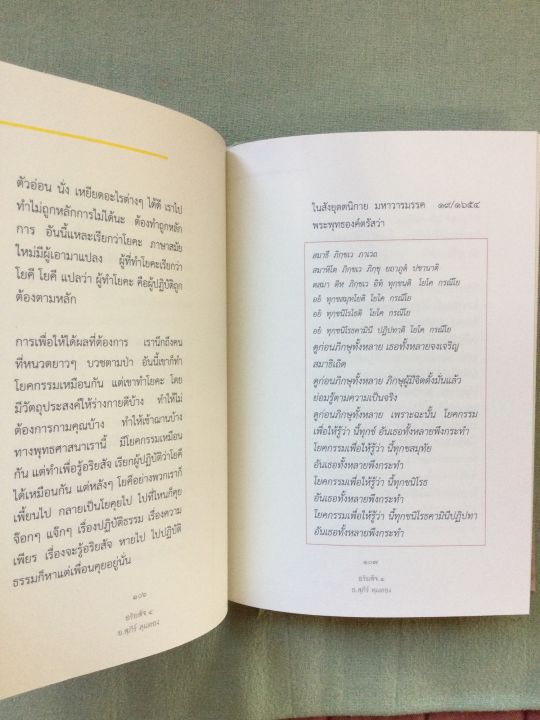 ตัวอ่อน นั่ง เหยียดอะไรต่างๆ ได้ดี เราไป
ทำไม่ถูกหลักการไม่ได้นะ ต้องทำถูกหลัก
การ อันนี้แหละเรียกว่าโยคะ ภาษาสมัย
ใหม่มีผู้เอามาแปลง ผู้ที่ทำโยคะเรียกว่า
โยคี โยคี แปลว่า ผู้ทำโยคะ คือผู้ปฏิบัติถูก
ต้องตามหลัก
การเพื่อให้ได้ผลที่ต้องการ เรานึกถึงคน
ที่หนวดยาวๆ บวชตามป่า อันนี้เขาก็ทำ
โยคกรรมเหมือนกัน แต่เขาทำโยคะ โดย
มีวัตถุประสงค์ให้ร่างกายดีบ้าง ทำให้ไม่
ต้องการกามคุณบ้าง ทำให้เข้าฌานบ้าง
ทางพุทธศาสนาเรานี้ มีโยคกรรมเหมือน
กัน แต่ทำเพื่อรู้อริยสัจ เรียกผู้ปฏิบัติว่าโยคี
ได้เหมือนกัน แต่หลังๆ โยคีอย่างพวกเราก็
เพี้ยนไป กลายเป็นโยคุยไป ไปที่ไหนก็คุย
จ๊อกๆ แจ๊กๆ เรื่องปฏิบัติธรรม เรื่องความ
เพียร เรื่องจะรู้อริยสัจ หายไป ไปปฏิบัติ
ธรรมก็หาแต่เพื่อนคุยอยู่นั่น
๑๐๖
อริยสัจ ๔
อ.สุภีร์ ทุมทอง
ในสังยุตตนิกาย มหาวารมรรค ๑๙/๑๖๕๔
พระพุทธองค์ตรัสว่า
สมาธึ ภิกฺขเว ภาเวถ
สมาหิโต ภิกฺขเว ภิกฺขุ ยถาภูตํ ปชานาติ
ตสฺมา ติห ภิกฺขเว อิทํ ทุกฺขนฺติ โยโค กรณีโย
อยํ ทุกฺขสมุทโยติ โยโค กรณีโย
อยํ ทุกฺขนิโรโธติ โยโค กรณีโย
อยํ ทุกฺขนิโรธคามินี ปฏิปทาติ โยโค กรณีโย
ดูก่อนภิกษุทั้งหลาย เธอทั้งหลายจงเจริญ
สมาธิเถิด
ดูก่อนภิกษุทั้งหลาย ภิกษุผู้มีจิตตั้งมั่นแล้ว
ย่อมรู้ตามความเป็นจริง
ดูก่อนภิกษุทั้งหลาย เพราะฉะนั้น โยคกรรม
เพื่อให้รู้ว่า นี้ทุกข์ อันเธอทั้งหลายพึงกระทำ
โยคกรรมเพื่อให้รู้ว่า นี้ทุกขสมุทัย
อันเธอทั้งหลายพึงกระทำ
โยคกรรมเพื่อให้รู้ว่า นี้ทุกขนิโรธ
อันเธอทั้งหลายพึงกระทำ
โยคกรรมเพื่อให้รู้ว่า นี้ทุกขนิโรธคามินีปฏิปทา
อันเธอทั้งหลายพึงกระทำ
๑๐๗
อริยสัจ ๔
อ.สุภีร์ ทุมทอง